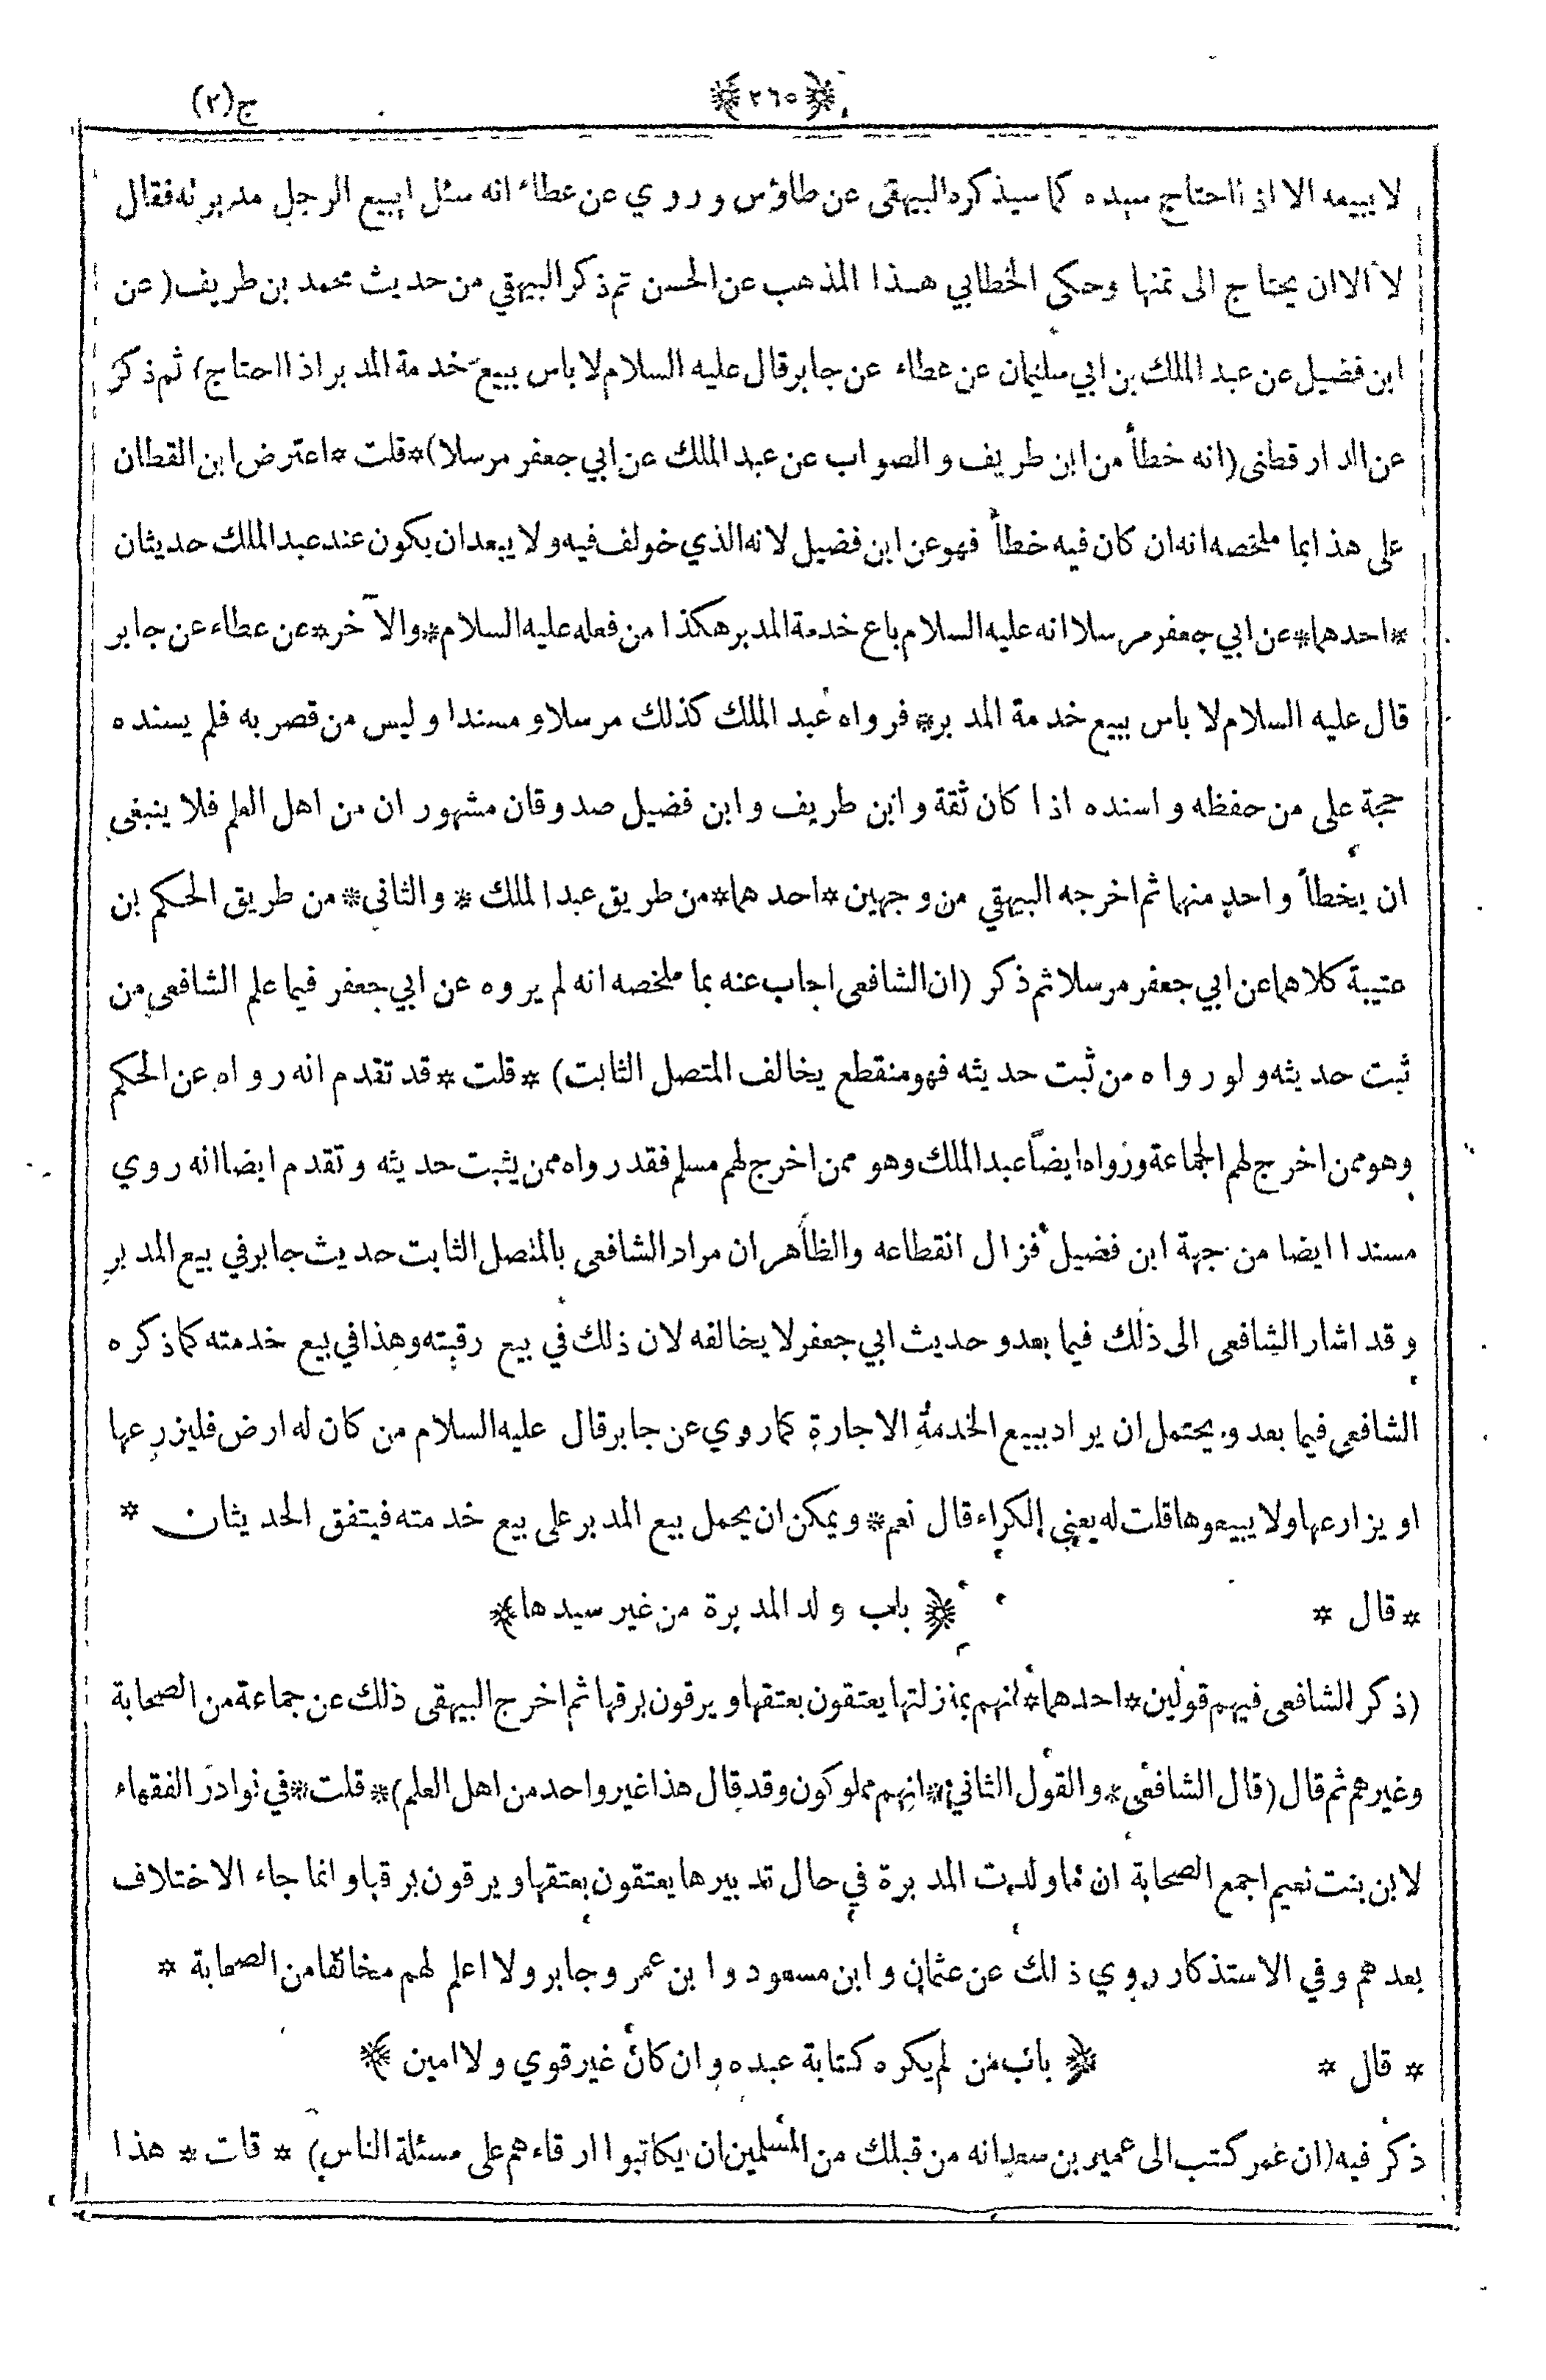 ﴿٢٦٥﴾ ج(٢)
لا يبيعه الا اذا احتاج سيده كما سيذكره البيهقى عن طاؤس وروي عن عطاء انه سئل ايبيع الرجل مدبرته فقال
لا الا ان يحتاج الى ثمنها وحكى الخطابي هذا المذهب عن الحسن ثم ذكر البيهقي من حديث محمد بن طريف (عن
ابن فضيل عن عبد الملك بن ابي سليمان عن عطاء عن جابر قال عليه السلام لا باس ببيع خدمة المدبر اذا احتاج) ثم ذكر
عن الدارقطنى (انه خطأ من ابن طريف والصواب عن عبد الملك عن ابي جعفر مرسلا) * قلت * اعترض ابن القطان
على هذا بما ملخصه انه ان كان فيه خطأ فهو عن ابن فضيل لانه الذي خولف فيه ولا يبعد ان يكون عند عبد الملك حديثان
* احدهما * عن ابي جعفر مرسلا انه عليه السلام باع خدمة المدبر هكذا من فعله عليه السلام * والآخر * عن عطاء عن جابر
قال عليه السلام لا باس ببيع خدمة المدبر * فرواه عبد الملك كذلك مرسلا و مسندا وليس من قصر به فلم يسنده
حجة على من حفظه واسنده اذا كان ثقة وابن طريف وابن فضيل صدوقان مشهوران من اهل العلم فلا ينبغى
ان يخطأ واحد منهما ثم اخرجه البيهقي من وجهين * احدهما * من طريق عبد الملك * والثاني * من طريق الحكم بن
عتيبة كلاهما عن ابي جعفر مرسلا ثم ذكر (ان الشافعى اجاب عنه بما ملخصه انه لم يروه عن ابي جعفر فيما علم الشافعى من
ثبت حديثه ولو رواه من ثبت حديثه فهو منقطع يخالف المتصل الثابت) * قلت * قد تقدم انه رواه عن الحكم
وهو ممن اخرج لهم الجماعة ورواه ايضاً عبد الملك وهو ممن اخرج لهم مسلم فقد رواه ممن يثبت حديثه وتقدم ايضا انه روي
مسندا ايضا من جهة ابن فضيل فزال انقطاعه والظاهر ان مراد الشافعى بالمتصل الثابت حديث جابر في بيع المدبر
وقد اشار الشافعى الى ذلك فيما بعد وحديث ابي جعفر لا يخالفه لان ذلك في بيع رقبته وهذا في بيع خدمته كما ذكره
الشافعى فيما بعد ويحتمل ان يراد ببيع الخدمة الاجارة كما روي عن جابر قال عليه السلام من كان له ارض فليزرعها
او يزارعها ولا يبيعوها قلت له يعنى الكراء قال نعم * ويمكن ان يحمل بيع المدبر على بيع خدمته فيتفق الحديثان *
* قال * ﴿ باب ولد المدبرة من غير سيدها ﴾
(ذكر الشافعى فيهم قولين * احدهما * انهم بمنزلتها يعتقون بعتقها ويرقون برقها ثم اخرج البيهقى ذلك عن جماعة من الصحابة
وغيرهم ثم قال (قال الشافعى * والقول الثاني * انهم مملوكون وقد قال هذا غير واحد من اهل العلم) * قلت * في نوادر الفقهاء
لابن بنت نعيم اجمع الصحابة ان ما ولدت المدبرة في حال تدبيرها يعتقون بعتقها ويرقون برقها وانما جاء الاختلاف
بعدهم وفي الاستذكار روي ذلك عن عثمان وابن مسعود وابن عمر وجابر ولا اعلم لهم مخالفا من الصحابة *
* قال * ﴿ باب من لم يكره كتابة عبده وان كان غير قوي ولا امين ﴾
ذكر فيه (ان عمر كتب الى عمير بن سعد انه من قبلك من المسلمين ان يكاتبوا ارقاءهم على مسئلة الناس) * قلت * هذا